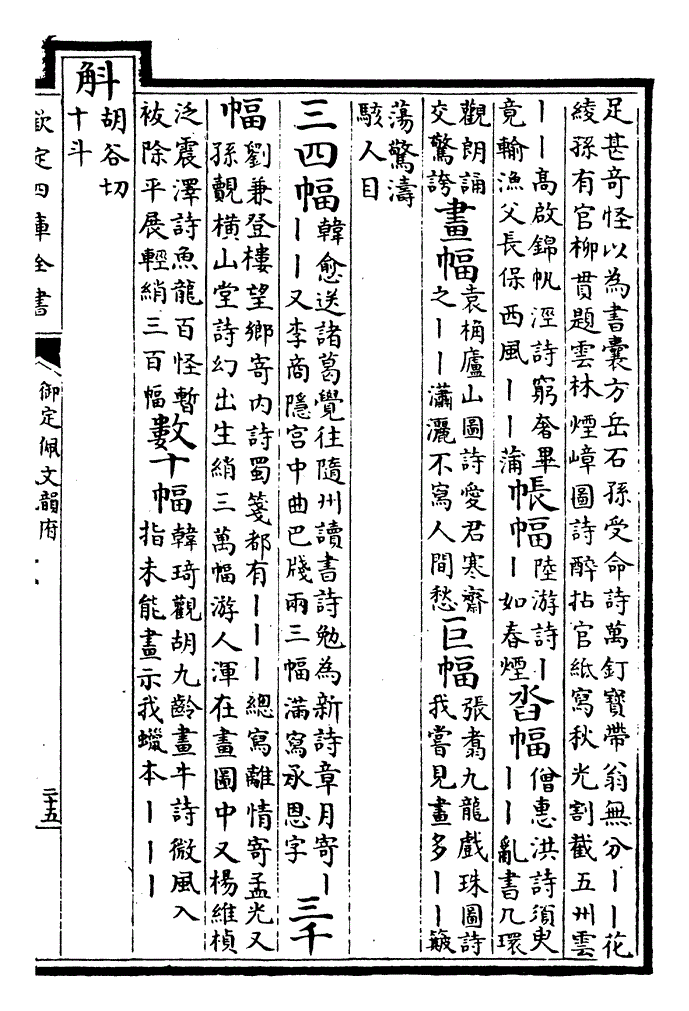 足甚竒怪以為書囊方岳石孫受命詩萬釘寶帶翁無分丨丨花
綾孫有官柳貫題雲林煙嶂圖詩醉拈官紙寫秋光割截五州雲
丨丨高啟錦帆涇詩窮奢畢
竟輸漁父長保西風丨丨蒲
帳幅
陸游詩丨
丨如春煙
沓幅
僧惠洪詩須臾
丨丨亂書几環
觀朗誦
交驚誇
畫幅
袁桷廬山圖詩愛君寒齋
之丨丨瀟灑不寫人間愁
巨幅
張翥九龍戲珠圖詩
我嘗見畫多丨丨簸
蕩驚濤
駭人目
三四幅
韓愈送諸葛覺往隨州讀書詩勉為新詩章月寄丨
丨丨又李商隱宫中曲巴牋兩三幅滿寫承恩字
三千
幅
劉兼登樓望鄉寄内詩蜀箋都有丨丨丨總寫離情寄孟光又
孫覿横山堂詩幻出生綃三萬幅游人渾在畫圖中又楊維楨
泛震澤詩魚龍百怪暫
被除平展輕綃三百幅
數十幅
韓琦觀胡九齡畫牛詩微風入
指未能畫示我蠟本丨丨丨
斛
胡谷切
十斗
欽定四庫全書
御定佩文韻府
二十五